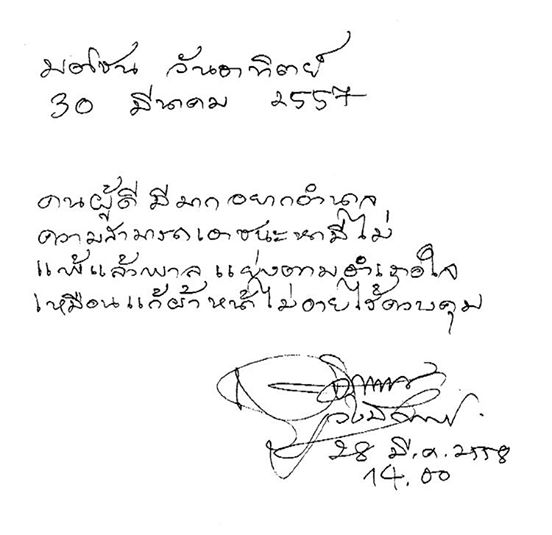 มติชน วันอาทิตย์
30 มีนาคม 2557
คนผู้ดี มีมาก อยากอำนาจ
ความสามารถเอาชนะหามีไม่
แพ้แล้วพาล แย่งตามอำเภอใจ
เหมือนแก้ผ้าหน้าไม่อายไร้ควบคุม
28 มี.ค. 2558
14.00